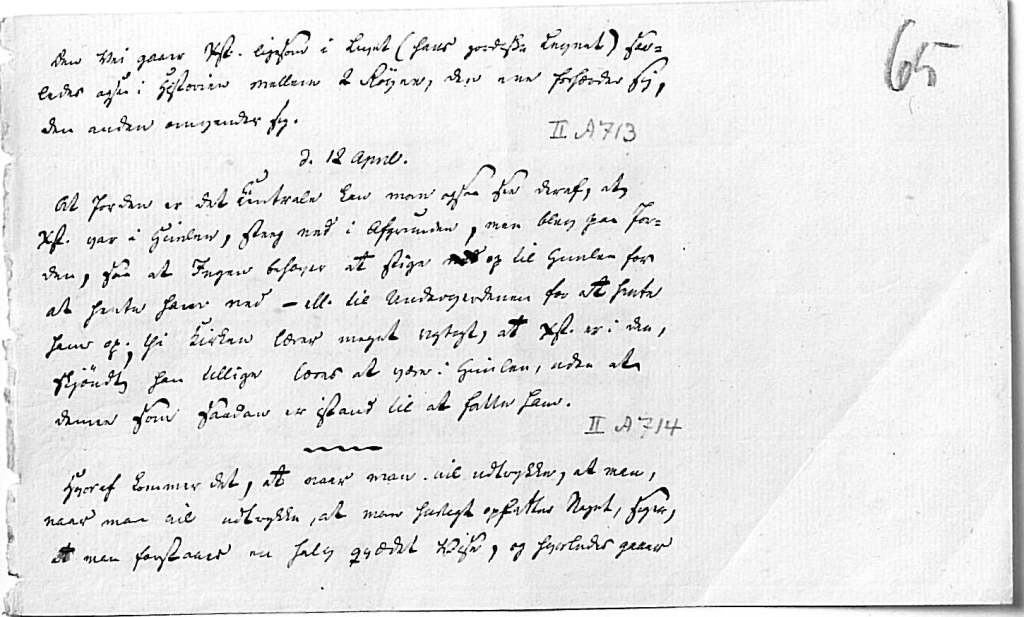 den Vei gaaer Xst. ligesom i Livet (hans jordiske Levnet) saa=
ledes ogsaa i Historien mellem 2 Røvere, den ene forhærder sig,
den anden omvender sig.
65
II A 713
d. 12 April.
At Jorden er det Centrale kan man ogsaa see deraf, at
Xst. var i Himlen, steeg ned i Afgrunden, men blev paa Jor=
den, saa at Ingen behøver at stige op til Himlen for
at hente ham ned – ell. til Underverdenen for at hente
ham op; thi Kirken lærer meget rigtigt, at Xst. er i den,
skjøndt han tillige læres at være i Himlen, uden at
denne som saadan er istand til at fatte ham.
II A 714
Hvoraf kommer det, at naar man vil udtrykke, at man,
naar man vil udtrykke, at man hurtigt opfatter Noget, siger,
at man forstaaer en halv qvædet Vise, og hvorledes gaaer